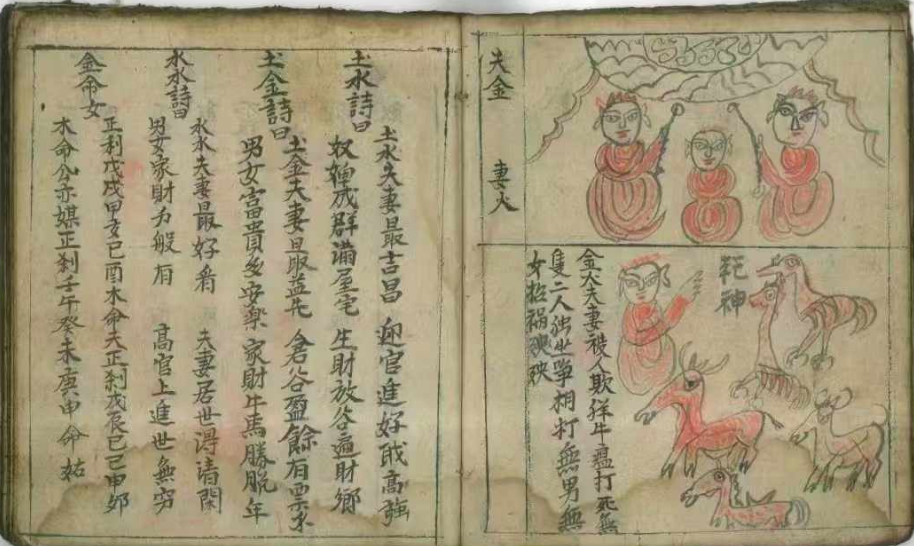 犯神
金火夫妻被人欺牂牛瘟打死無
隻二人独坐爭相打無男無
女招禍殃殃
夫金 妻火
土水詩曰
土水夫妻最吉昌 迎官進好戝高強
奴婢成群满屋宅 生財放谷過財鄉
土金詩曰
土金夫妻是最益 倉谷盈餘有票
男女富貴多安楽 家財牛馬勝脫年
水水詩曰
水水夫妻最好看 夫妻居世得清閑
男女家財力般有 高官上進世無穷
金命女
正利戊戌甲亥己酉木命夫正刹戊辰己巳甲夘
木命公亦媒正刹壬午癸未庚申 命姑